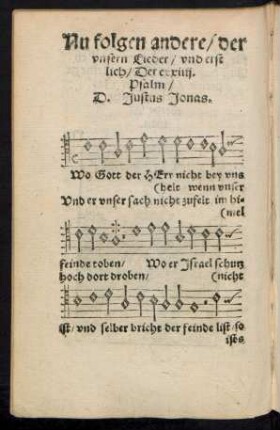 Nu folgen andere/ der
vnsern Lieder/ vnd erst
lich/ Der cxxiiij.
Psalm/
D. Justus Jonas.
Wo Gott der HErr nicht bey vns
(helt wenn vnser
Vnd er vnser sach nicht zufelt im hi-
(mel
feinde toben/ Wo er Israel schutz
hoch dort droben/ (nicht
ist/ vnd selber bricht der feinde list/ so
ists